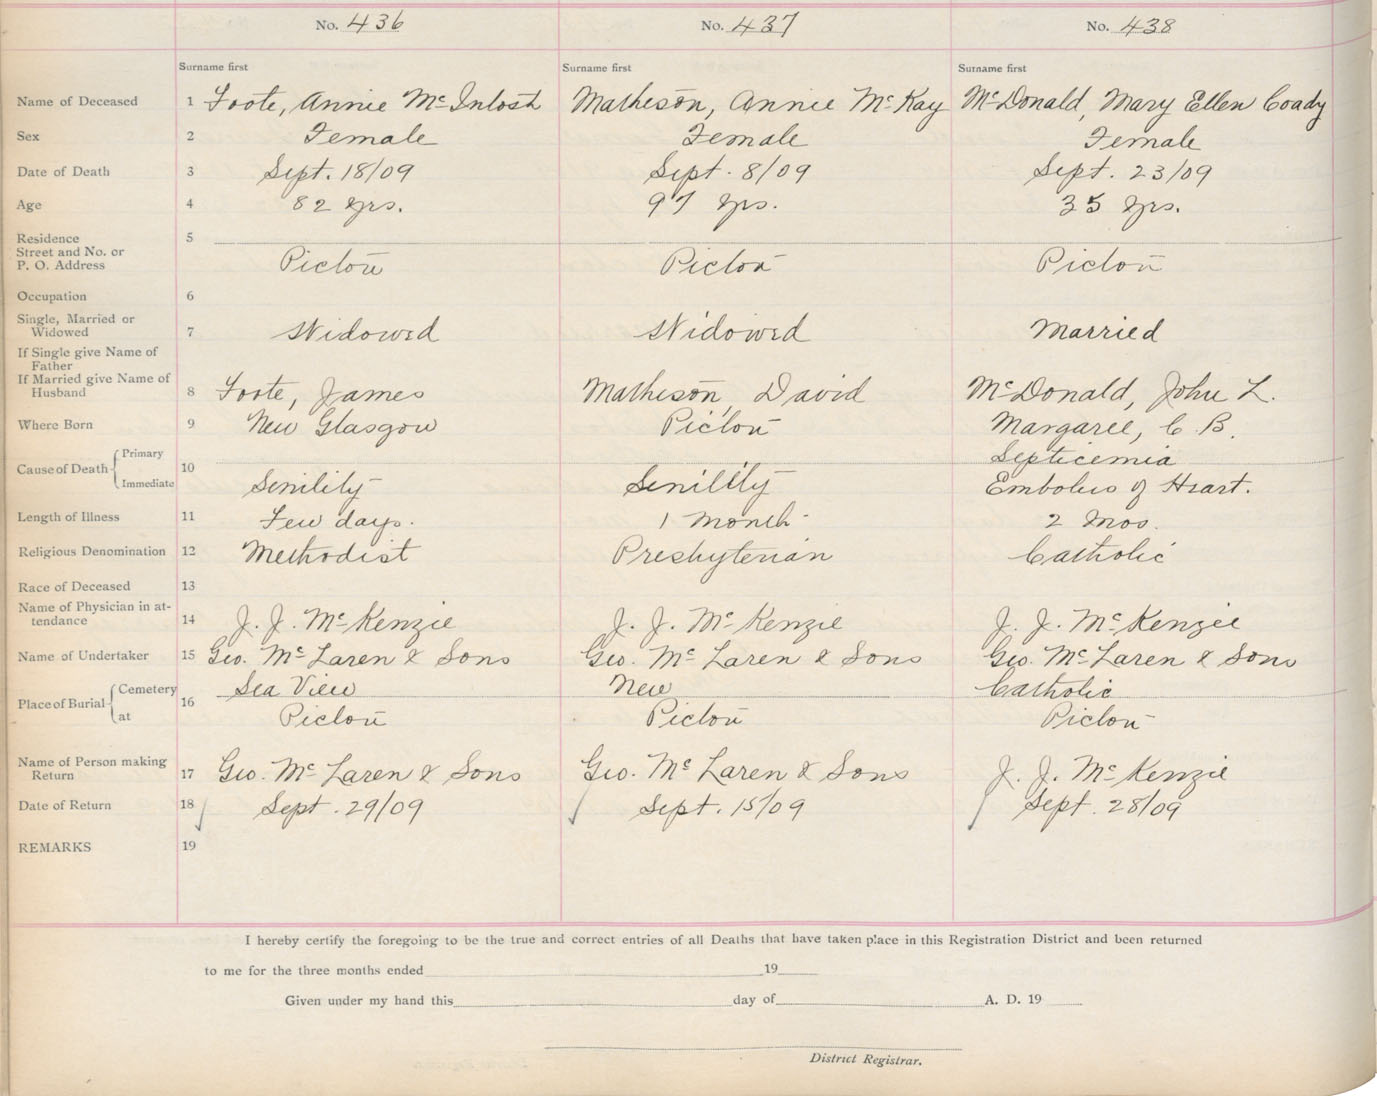 No. 436 No. 437 No. 438
Surname first Surname first Surname first
Name of Deceased 1 Foote, Annie McIntosh Matheson, Annie McKay McDonald, Mary Ellen Coady
Sex 2 Female Female Female
Date of Death 3 Sept. 18/09 Sept. 8/09 Sept. 23/09
Age 4 82 yrs. 97 yrs. 35 yrs.
Residence 5
Street and No. or
P. O. Address Pictou Pictou Pictou
Occupation 6
Single, Married or
Widowed 7 Widowed Widowed Married
If Single give Name of
Father
If Married give Name of
Husband 8 Foote, James Matheson, David McDonald, John L.
Where Born 9 New Glasgow Pictou Margaree, C.B.
Cause of Death Primary 10 Septicemia
Immediate Senility Senility Embolus of Heart.
Length of Illness 11 Few days. 1 Month 2 Mos.
Religious Denomination 12 Methodist Presbyterian Catholic
Race of Deceased 13
Name of Physician in at-
tendance 14 J. J. McKenzie J. J. McKenzie J. J. McKenzie
Name of Undertaker 15 Geo. McLaren & Sons Geo. McLaren & Sons Geo. McLaren & Sons
Place of Burial Cemetery 16 Sea View New Catholic
at Pictou Pictou Pictou
Name of Person making
Return 17 Geo. McLaren & Sons Geo. McLaren & Sons J. J. McKenzie
Date of Return 18 Sept. 29/09 Sept. 15/09 Sept. 28/09
REMARKS 19
I hereby certify the foregoing to be the true and correct entries of all Deaths that have taken place in this Registration District and been returned
to me for the three months ended 19
Given under my hand this day of A. D. 19
District Registrar.